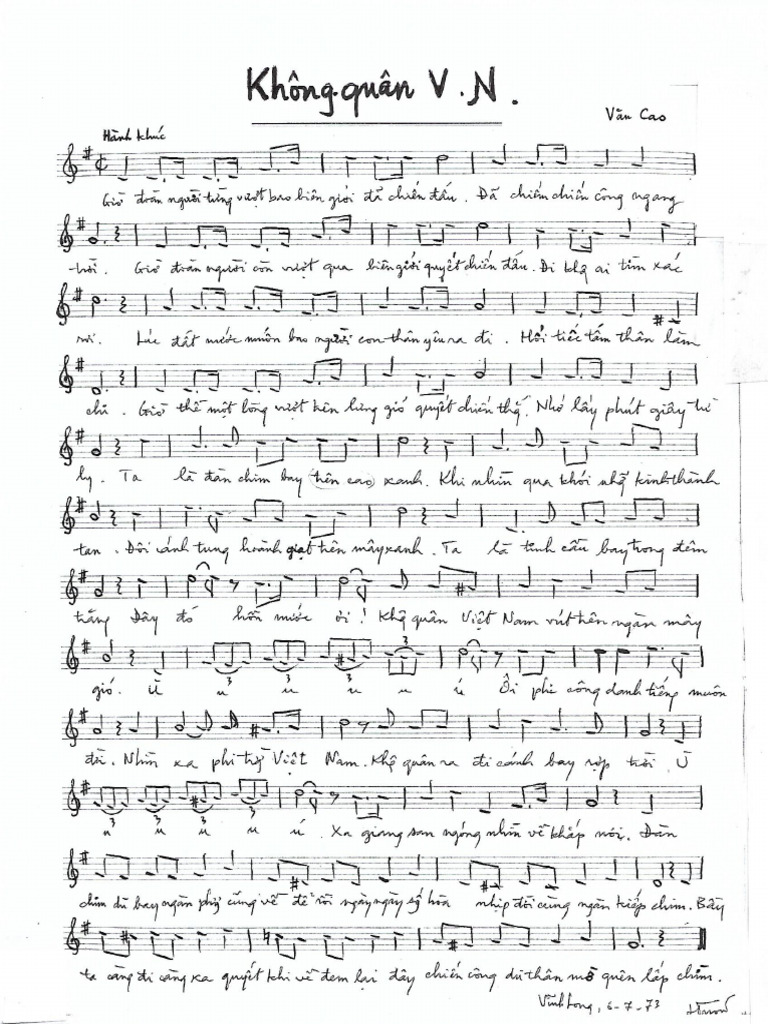 Không quân V.N.
Văn Cao
Hành khúc
Giờ đoàn người từng vượt bao biên giới đã chiến đấu. Đã chiến chiến công ngang
trời. Giờ đoàn người còn vượt qua biên giới quyết chiến đấu. Đi khg ai tìm xác
rơi. Lúc đất nước muốn bao người con thân yêu ra đi. Hồi tiếc tấm thân làm
chi. Giờ thề một lòng vượt trên lưng gió quyết chiến thg. Nhớ lấy phút giây từ
ly. Ta là đàn chim bay trên cao xanh. Khi nhìn qua khói những kinh thành
tan. Đôi cánh tung hoành giạt trên mây xanh. Ta là tinh cầu bay trong đêm
trăng Đây đó hồn nước ơi! Khg quân Việt Nam vút trên ngàn mây
gió. Ù u ú u u ú Ôi phi công danh tiếng muôn
đời. Nhìn xa phi trg Việt Nam. Khg quân ra đi cánh bay rợp trời. Ù
u ú ú u ú. Xa giang san ngóng nhìn về khắp nơi. Đàn
chim dù bay ngàn phg cũng về để rồi ngày ngày sg hòa nhịp đời cùng ngàn kiếp chim. Bầy
ta càng đi càng xa quyết khi về đem lại đây chiến công dù thân mờ quên lấp chìm.
Vĩnh Long, 6-7-73